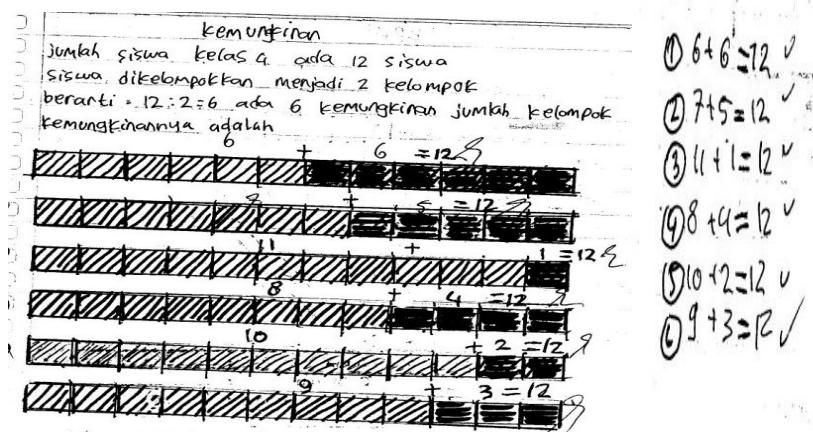 kemungkinan
jumlah siswa kelas 4 ada 12 siswa
siswa dikelompokkan menjadi 2 kelompok
berarti = 12:2=6 ada 6 kemungkinan jumlah kelompok
kemungkinannya adalah
6 + 6 =12
+ 5 =12
11 + 1 =12
8 + 4 =12
10 + 2 =12
9 + 3 = 12
① 6+6=12 ✓
② 7+5=12 ✓
③ 11+1=12 ✓
④ 8+4=12 ✓
⑤ 10+2=12 ✓
⑥ 9+3=12 ✓